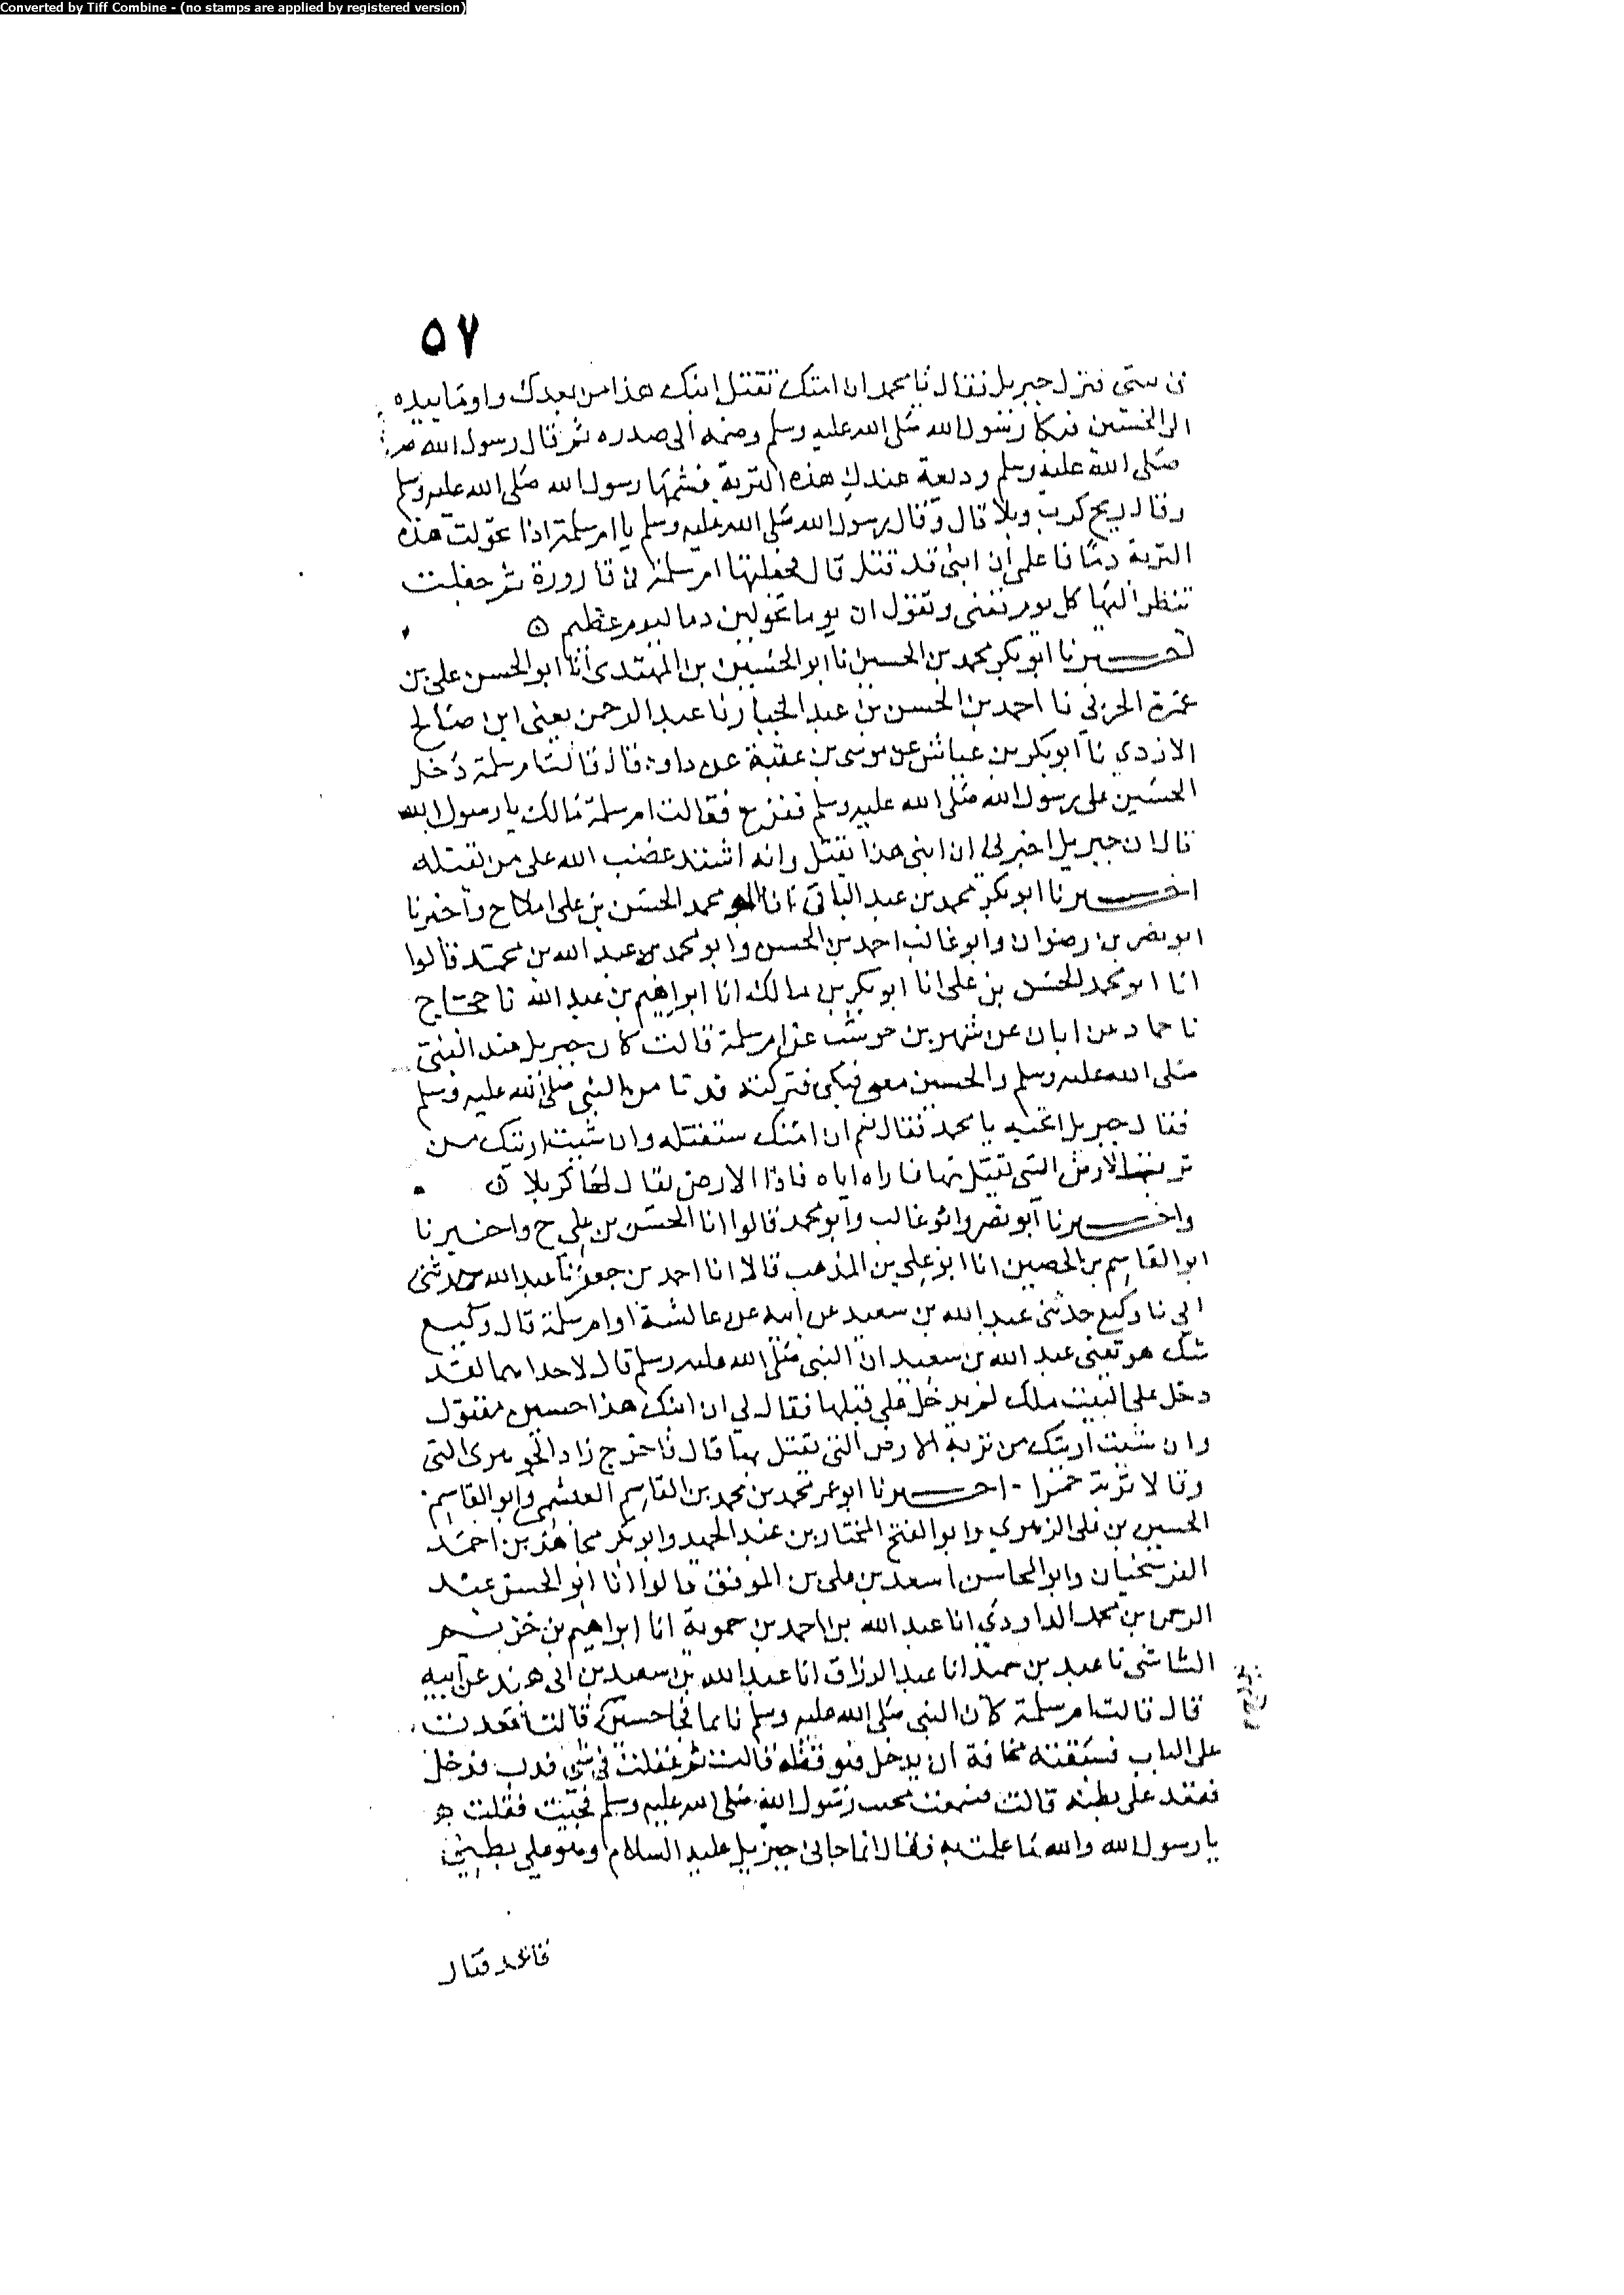 Converted by Tiff Combine - (no stamps are applied by registered version)
٥٧
فى بيتى فنزل جبريل فقال يا محمد ان امتك تقتل ابنك هذا من بعدك واومأ بيده
الى الحسين فبكا رسول الله صلى الله عليه وسلم وضمه الى صدره ثم قال رسول الله
صلى الله عليه وسلم وديعة عندك هذه التربة فشمها رسول الله صلى الله عليه وسلم
وقال ريح كرب وبلا قال وقال رسول الله صلى الله عليه وسلم يا ام سلمة اذا تحولت هذه
التربة دما فاعلمى ان ابنى قد قتل قال فجعلتها ام سلمة فى قارورة ثم جعلت
تنظر اليها كل يوم تعنى وتقول ان يوما تحولين دما ليوم عظيم
اخبرنا ابو بكر محمد بن الحسين نا ابو الحسين بن المهتدى انا ابو الحسن على بن
عمر الحربي نا احمد بن الحسن بن عبد الجبار نا عبد الرحمن يعنى ابن صالح
الازدي نا ابو بكر بن عياش عن موسى بن عقبة عن داود قال قالت ام سلمة دخل
الحسين على رسول الله صلى الله عليه وسلم ففزع فقالت ام سلمة مالك يا رسول الله
قال ان جبريل اخبرنى ان ابنى هذا يقتل وانه اشتد غضب الله على من يقتله
اخبرنا ابو بكر محمد بن عبد الباقى انا ابو محمد الحسن بن على املا ح واخبرنا
ابو نصر بن رضوان وابو غالب احمد بن الحسن وابو محمد عبد الله بن محمد قالوا
انا ابو محمد الحسن بن على انا ابو بكر بن مالك انا ابراهيم بن عبد الله نا حجاج
نا حماد عن ابان عن شهر بن حوشب عن ام سلمة قالت كان جبريل عند النبى
صلى الله عليه وسلم والحسين معى فبكى فتركته فدنا من النبى صلى الله عليه وسلم
فقال جبريل اتحبه يا محمد فقال نعم ان امتك ستقتله وان شيت اريتك من
تربة الارض التى يقتل بها فاراه اياه فاذا الارض يقال لها كربلا
واخبرنا ابو نصر وابو غالب وابو محمد قالوا انا الحسن بن علي ح واخبرنا
ابو القاسم بن الحصين انا ابو علي بن المذهب قالا انا احمد بن جعفر نا عبد الله حدثنى
ابي نا وكيع حدثنى عبد الله بن سعيد عن ابيه عن عائشة او ام سلمة قال وكيع
شك هو يعنى عبد الله بن سعيد ان النبى صلى الله عليه وسلم قال لاحداهما لقد
دخل على البيت ملك لم يدخل على قبلها فقال لي ان ابنك هذا حسين مقتول
وان شيت اريتك من تربة الارض التى يقتل بها قال فاخرج
وقالا تربة حمرا - اخبرنا ابو عمر محمد بن محمد بن القاسم العبشمى وابو القاسم
الحسين بن على الزهري وابو الفتح المختار بن عبد الحميد وابو بكر مجاهد بن احمد
وابو المحاسن اسعد بن على بن الموفق قالوا انا ابو الحسن عبد
الرحمن بن محمد الداودي انا عبد الله بن احمد بن حموية انا ابراهيم بن خزيم
الشاشى نا عبد بن حميد انا عبد الرزاق انا عبد الله بن سعيد بن ابى هند عن ابيه
قال قالت ام سلمة كان النبى صلى الله عليه وسلم نايما فجا حسين قالت فقعدت
على الباب فسبقته مخافة ان يدخل فيوقظه قالت ثم غفلت في شى فدب فدخل
فقعد على بطنه قالت فسمعت نحيب رسول الله صلى الله عليه وسلم فجيت فقلت
يا رسول الله والله ما علمت به فقال انما جانى جبريل عليه السلام وهو على بطنى
قاعد فقال